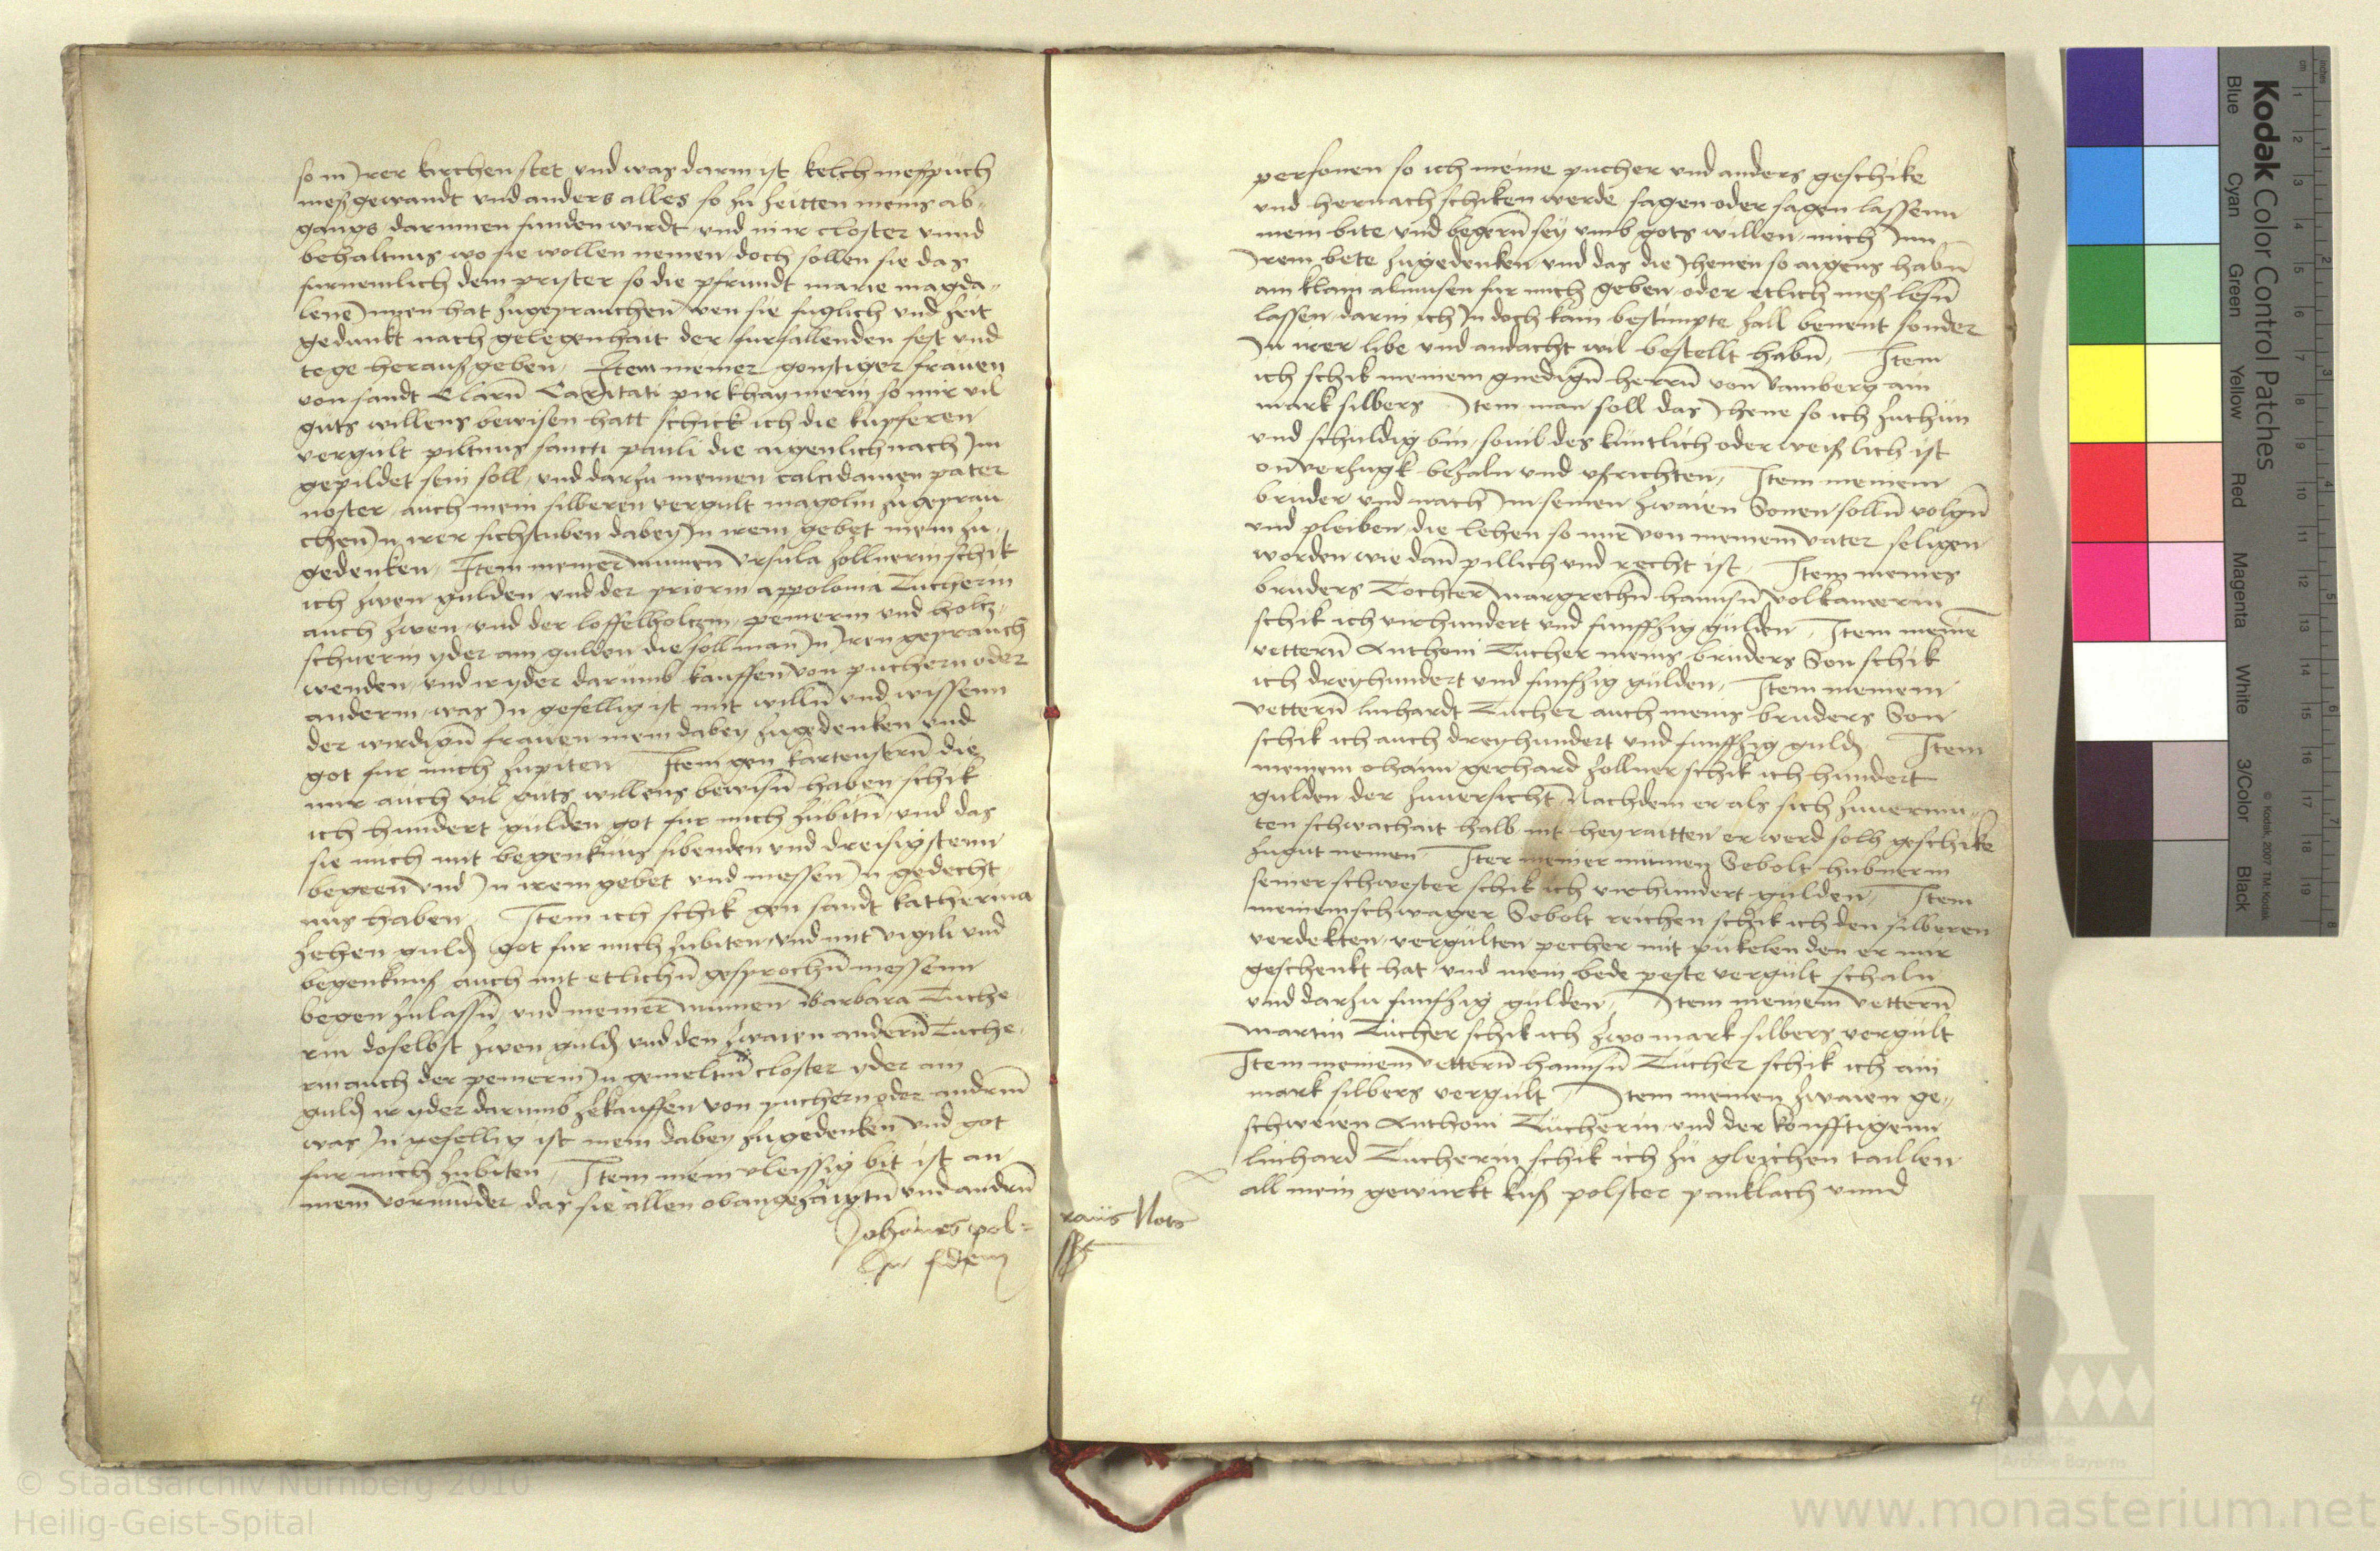 so in Irer kirchen stet vnd was darin ist kelch messpuch
messgewandt vnd anders alles so zu zeitten meins ab„
gangs darinnen funden wirdt vnd in ir closter vnnd
behaltnus wo sie wollen nemen doch sollen sie das
furnemlich dem prister so die pfrundt marie magda„
lene Innen hat zugeprauchen wen sie fuglich vnd zeit
gedunkt nach gelegenhait der furfallenden fest vnd
tege herauß geben, Item meiner gonstigen frauen
von sandt Clarn Caritati pirkhaymerin so mir vil
guts willens bewisen hatt schick ich die kupferen
vergult piltnus sancti pauli die aigenlich nach Im
gepildet sein soll, vnd darzu meinen calcidamen pater
noster auch mein silberen vergult magolin zugeprau
chen In irer sichstuben dabey In irem gebet mein zu„
gedenken, Item meiner mumen Vrsula zollnerin schik
ich zwen gulden vnd der priorin appolonia Tucherin
auch zwen, vnd der loffelholtzin, pemerin vnd holtz„
schuerin yder ain gulden die soll man In Iren geprauch
wenden, vnd ir yder darumb kauffen von puchern oder
anderm, was In gefellig ist mit willn vnd wissenn
der wirdign frauen mein dabey zugedenken vnd
got fur mich zupiten Item gen kartensern die
mir auch vil guts willens bewisn haben schik
ich hundert gulden got fur mich zubitn, vnd das
sie mich mit begenknus sibenden vnd dreisigstenn
begeen vnd In irem gebet vnd messen In gedecht„
nus haben, Item ich schik gen sandt katherina
zehen guld got fur mich zubiten, vnd mit vigili vnd
begenknus auch mit etlichn gesprochn messenn
begen zulassn, vnd meiner mumen Barbara Tuche„
rin doselbst zwen guld vnd den zwaien andern Tuche„
rin auch der pemerin In gemeltm closter yder ain
guld ir yder darumb zekauffen von puchern oder andrm
was In gefellig ist mein dabey zugedenken vnd got
fur mich zubiten, Item mein vleissig bit ist an
mein vormunder das sie allen obangezaigtn vnd andrn
Johannes pol=
In fidem
personen so ich meine pucher vnd anders geschike
vnd hernach schiken werde sagen oder sagen lassenn
mein bite, vnd begern sey vmb gots willen, mich Inn
Irem bete zugedenken vnd das die Ihenen so aigens habn
ain klain almusen fur mich geben oder etlich mess lesn
lassen, darin ich In doch kain bestimpte zall benent sonder
In irer libe vnd andacht wil bestellt habn, Item
ich schik meinem gnedign herrn von Bamberg ain
mark silbers Item man soll das Ihene so ich zuthun
vnd schuldig bin, souil des kuntlich oder weißlich ist
on verzugk bezaln vnd vßrichten, Item meinem
bruder vnd nach Im seinen zwaien Sonen solln volgn
vnd pleiben die lehen so mir von meinem vater seligen
worden wie dan pillich vnd recht ist, Item meines
bruders Tochter margrethn hannsn volkamerin
schik ich virhundert vnd funffzig gulden, Item meinē
vettern Anthoni Tucher meins bruders Son schik
ich dreyhundert vnd funfzig gulden, Item meinem
vettern linhardt Tucher auch meins bruders Son
schik ich auch dreyhundert vnd funffzig guld Item
meinem ohaim gerhard zollner schik ich hundert
gulden der zuuersicht Nachdem er als sich zuuermu„
ten schwachait halb nit heyraitten er werd solh geschike
zugut nemen Item meiner mumen Sebolt hubnerin
seiner schwester schik ich virhundert gulden, Item
meinem schwager Sebolt reichen schik ich den silberen
verdekten vergulten pecher mit pukelen den er mir
geschenkt hat, vnd mein bede peste vergult schaln
vnd darzu funfzig gulden, Item meinem vettern
Martin Tucher schik ich zwo mark silbers vergult
Item meinem vettern hannsn Tucher schik ich ain
mark silbers vergult, Item meinen zwaien ge„
schweien Anthoni Tucherin, vnd der konfftigenn
linhard Tucherin schik ich zu gleichen taillen
all mein gewurkt kuß polster panklach vnnd
raüs Nots
sst
4
Kodak Color Control Patches
Blue Cyan Green Yellow Red Magenta White 3/Color Black
© Kodak, 2007 TM: Kodak
© Staatsarchiv Nürnberg 2010
Heilig-Geist-Spital
Archive Bayerns
www.monasterium.net